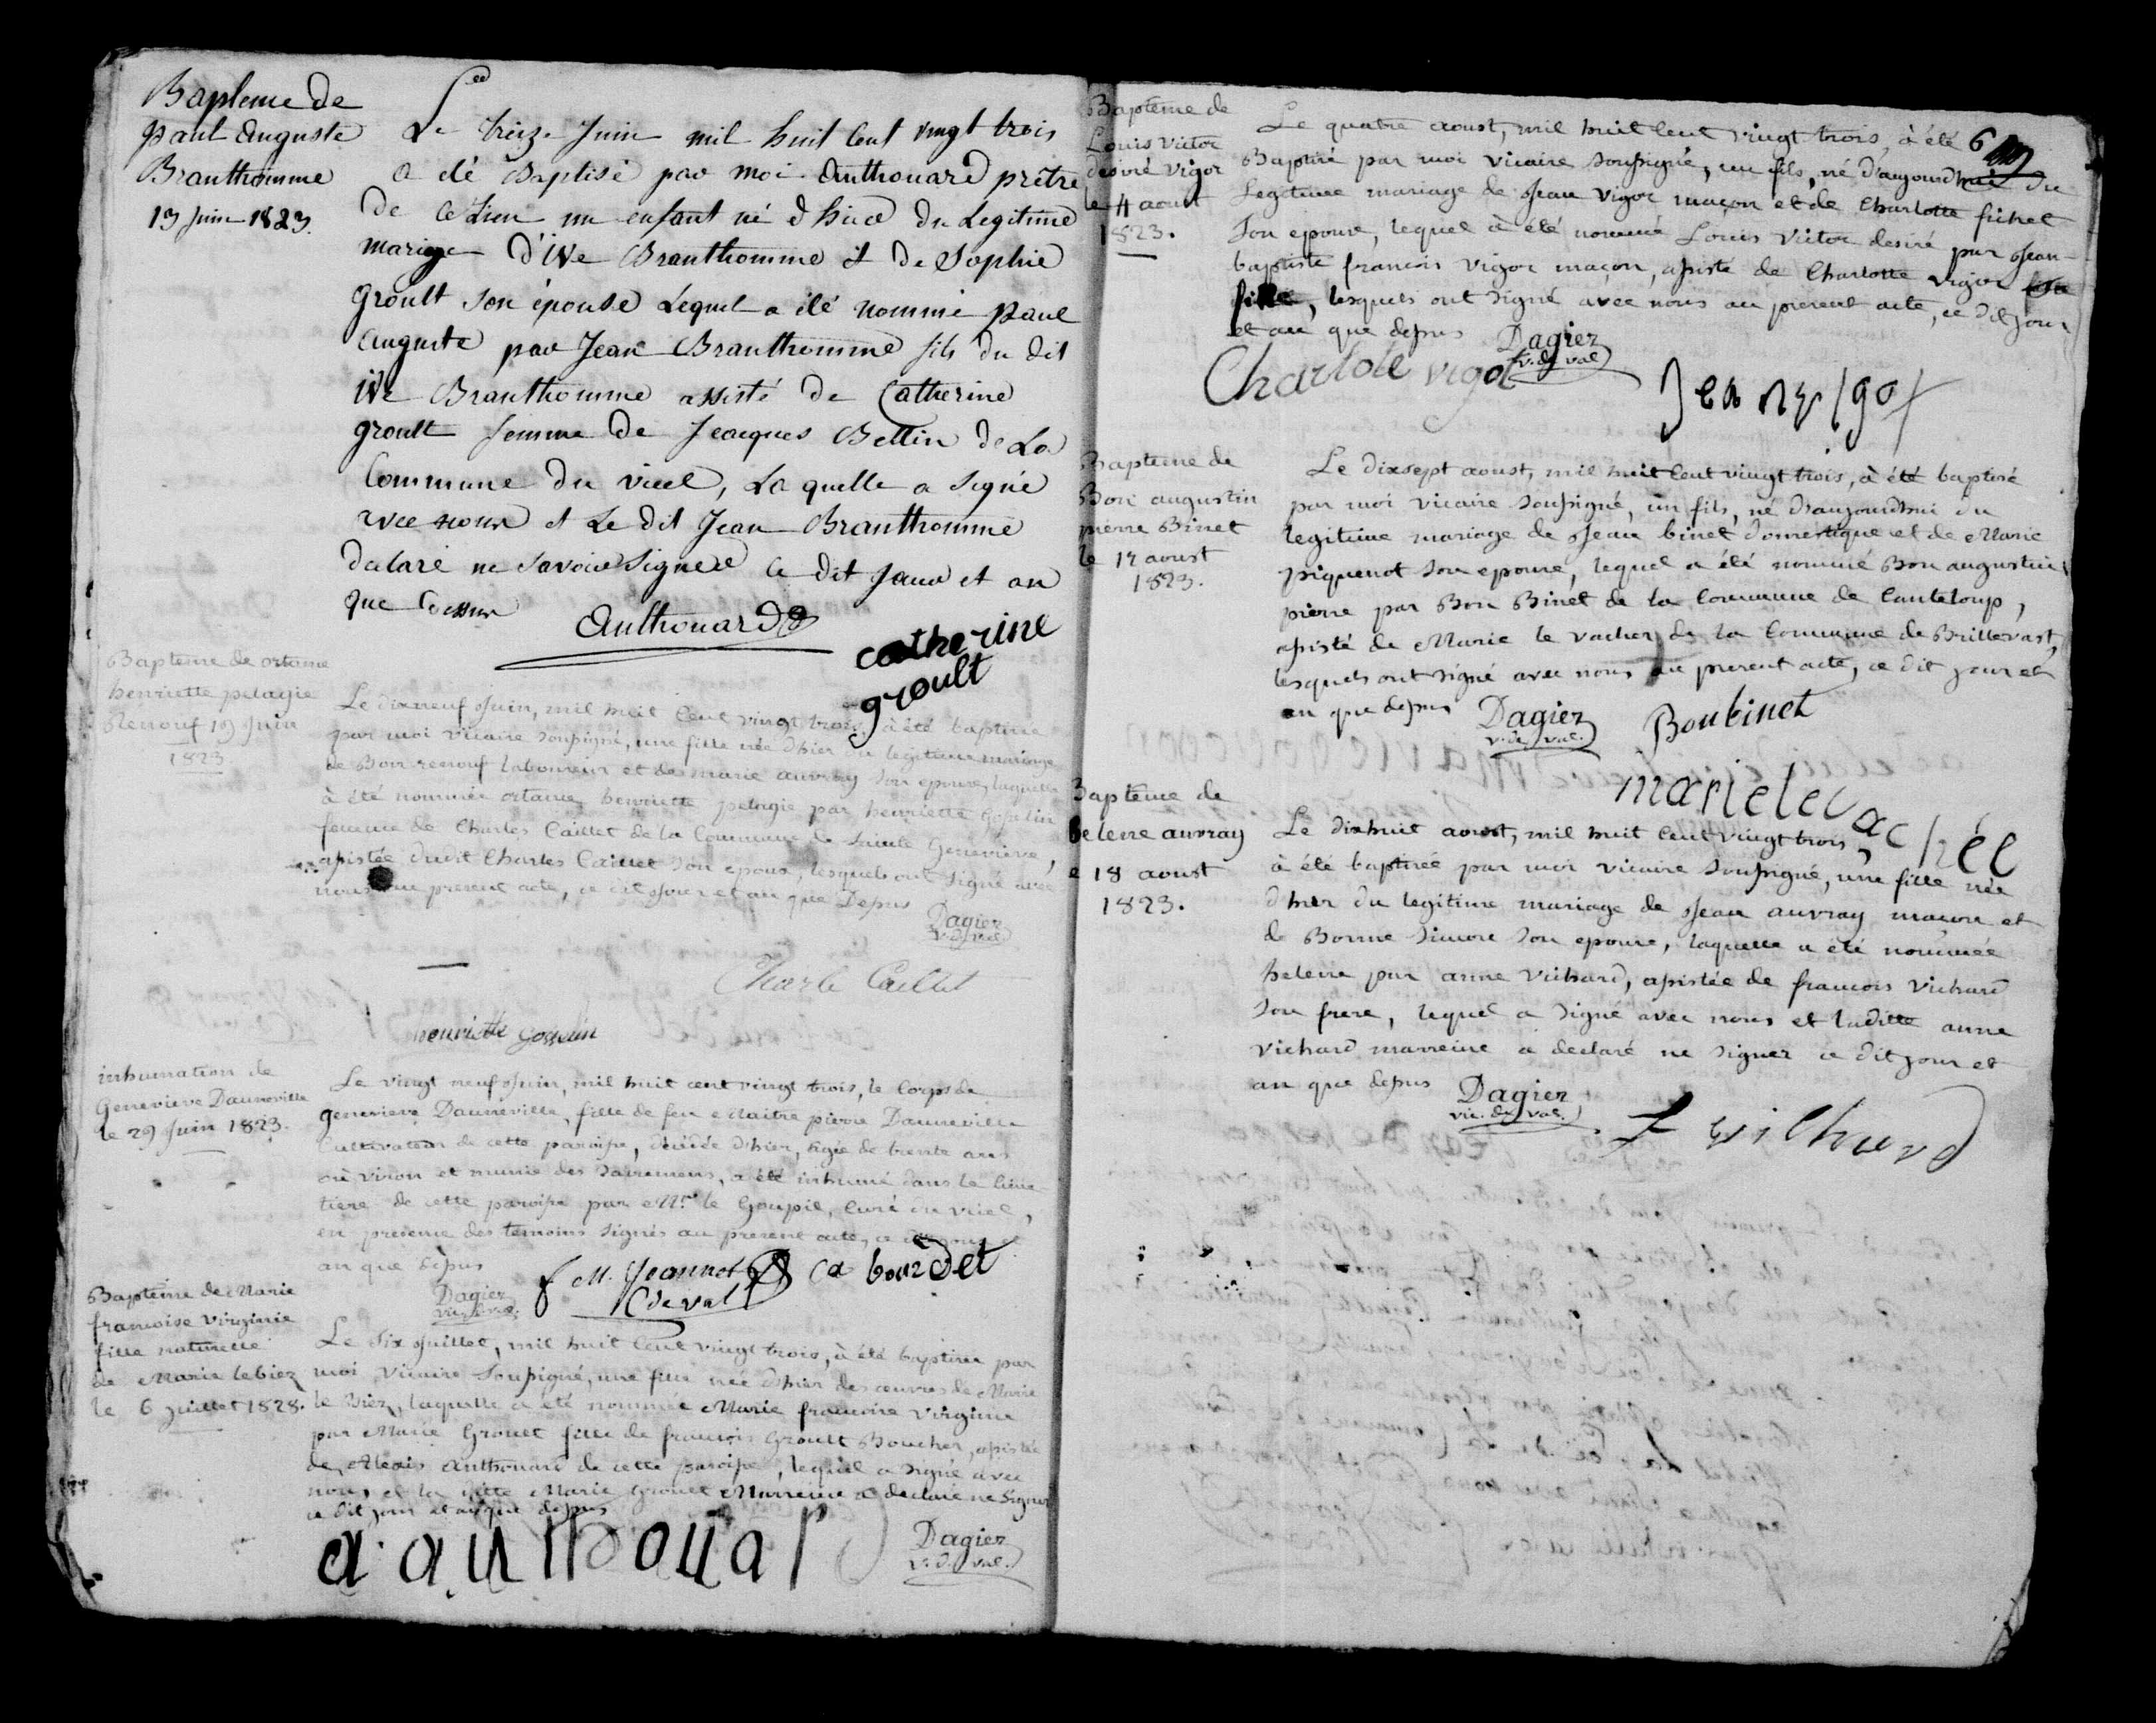 Bapteme de
paul auguste
Branthomme
13 Juin 1823.
Le treize Juin mil huit Cent vingt trois
a eté Baptisé par moi Anthouard prêtre
de ce Lieu un enfant né d'hier du Legitime
mariage d'iVe Branthomme et de Sophie
groult son épouse Lequel a été nommé paul
auguste par Jean Branthomme fils du dit
iVe Branthomme assisté de Catherine
groult femme de Jeacques Bettin de La
Commune du vicel, La quelle a signé
avec nous et Le dit Jean Branthomme
declaré ne savoir signer Ce dit Jour et an
que dessus
Anthouard
catherine
groult
Bapteme de ortance
henriette pelagie
Renouf 19 Juin
1823
Le dixneuf Juin, mil huit Cent vingt trois, à été baptisée
par moi vicaire soussigné, une fille née d'hier du legitime mariage
de Bon renouf laboureur et de marie auvray son epouse, laquelle
à été nommée ortance henriette pelagie par henriette Gosselin
femme de Charles Caillet de la Commune de Sainte Genevieve,
assistée dudit Charles Caillet son epoux, lesquels ont signé avec
nous au present acte, ce dit Jour et an que Depus
Dagier
v. du val
Charle Caillet
henriette gosselin
inhumation de
Genevieve Dauneville
le 29 Juin 1823.
Le vingt neuf Juin, mil huit cent vingt trois, le Corps de
genevieve Dauneville, fille de feu Maitre pierre Dauneville
Cultivateur de cette paroisse, décédée d'hier, agée de trente ans
où viron et munie des Sacremens, a été inhumé dans le Cime
tiere de cette paroisse par Mr. le Goupil, Curé du vicel,
en presence des temoins signés au present acte, ce dit jour et
an que depus
Dagier
vic. du val.
f M. Jeannet
C de val
ca bourdet
Bapteme de Marie
francoise virginie
fille naturelle
de Marie lebiez
le 6 Juillet 1823.
Le Six Juillet, mil huit Cent vingt trois, à été baptisée par
moi Vicaire Soussigné, une fille née d'hier des œuvres de Marie
le Biez, laquelle a été nommée Marie francoise virginie
par Marie Grouet fille de francois Groult Boucher, assistée
de Alexis anthouard de cette paroisse, lequel a signé avec
nous, et la ditte Marie Grouet Marreine a declaré ne signer
ce dit jour et an que depus
a. anthouard
Dagier
v. du val.
6
Bapteme de
Louis victor
desiré vigor
le 4 aoust
1823.
Le quatre aoust, mil huit Cent vingt trois, à été
Baptisé par moi vicaire soussigné, un fils, né d'aujourdhui du
Legitime mariage de Jean vigor maçon et de Charlotte fichet
son epouse, lequel à été nommé Louis victor desiré par Jean
baptiste francois vigor maçon, assisté de Charlotte vigor
fille, lesquels ont signé avec nous au present acte, ce dit jour
et an que depus
Dagier
v. du val
Charlote vigot
Jean vigot
Bapteme de
Bon augustin
pierre Binet
le 17 aoust
1823.
Le dixsept aoust, mil huit Cent vingt trois, à été baptisé
par moi vicaire soussigné, un fils, né d'aujourdhui du
legitime mariage de Jean binet domestique et de Marie
piquenot son epouse, lequel a été nommé Bon augustin
pierre par Bon Binet de la Commune de Canteloup,
assisté de Marie le vacher de la Commune de Brillevast,
lesquels ont signé avec nous au present acte, ce dit jour et
an que depus
Dagier
v. du val.
Bonbinet
marie levachée
Bapteme de
helene auvray
le 18 aoust
1823.
Le dixhuit aoust, mil huit Cent vingt trois,
à été baptisée par moi vicaire soussigné, une fille née
d'hier du legitime mariage de Jean auvray maçon et
de Bonne Simon son epouse, laquelle a été nommée
helene par anne Vichard, assistée de francois Vichard
son frere, lequel a signé avec nous et laditte anne
Vichard marreine a declaré ne signer ce dit jour et
an que depus
Dagier
vic. du val.
f vichard